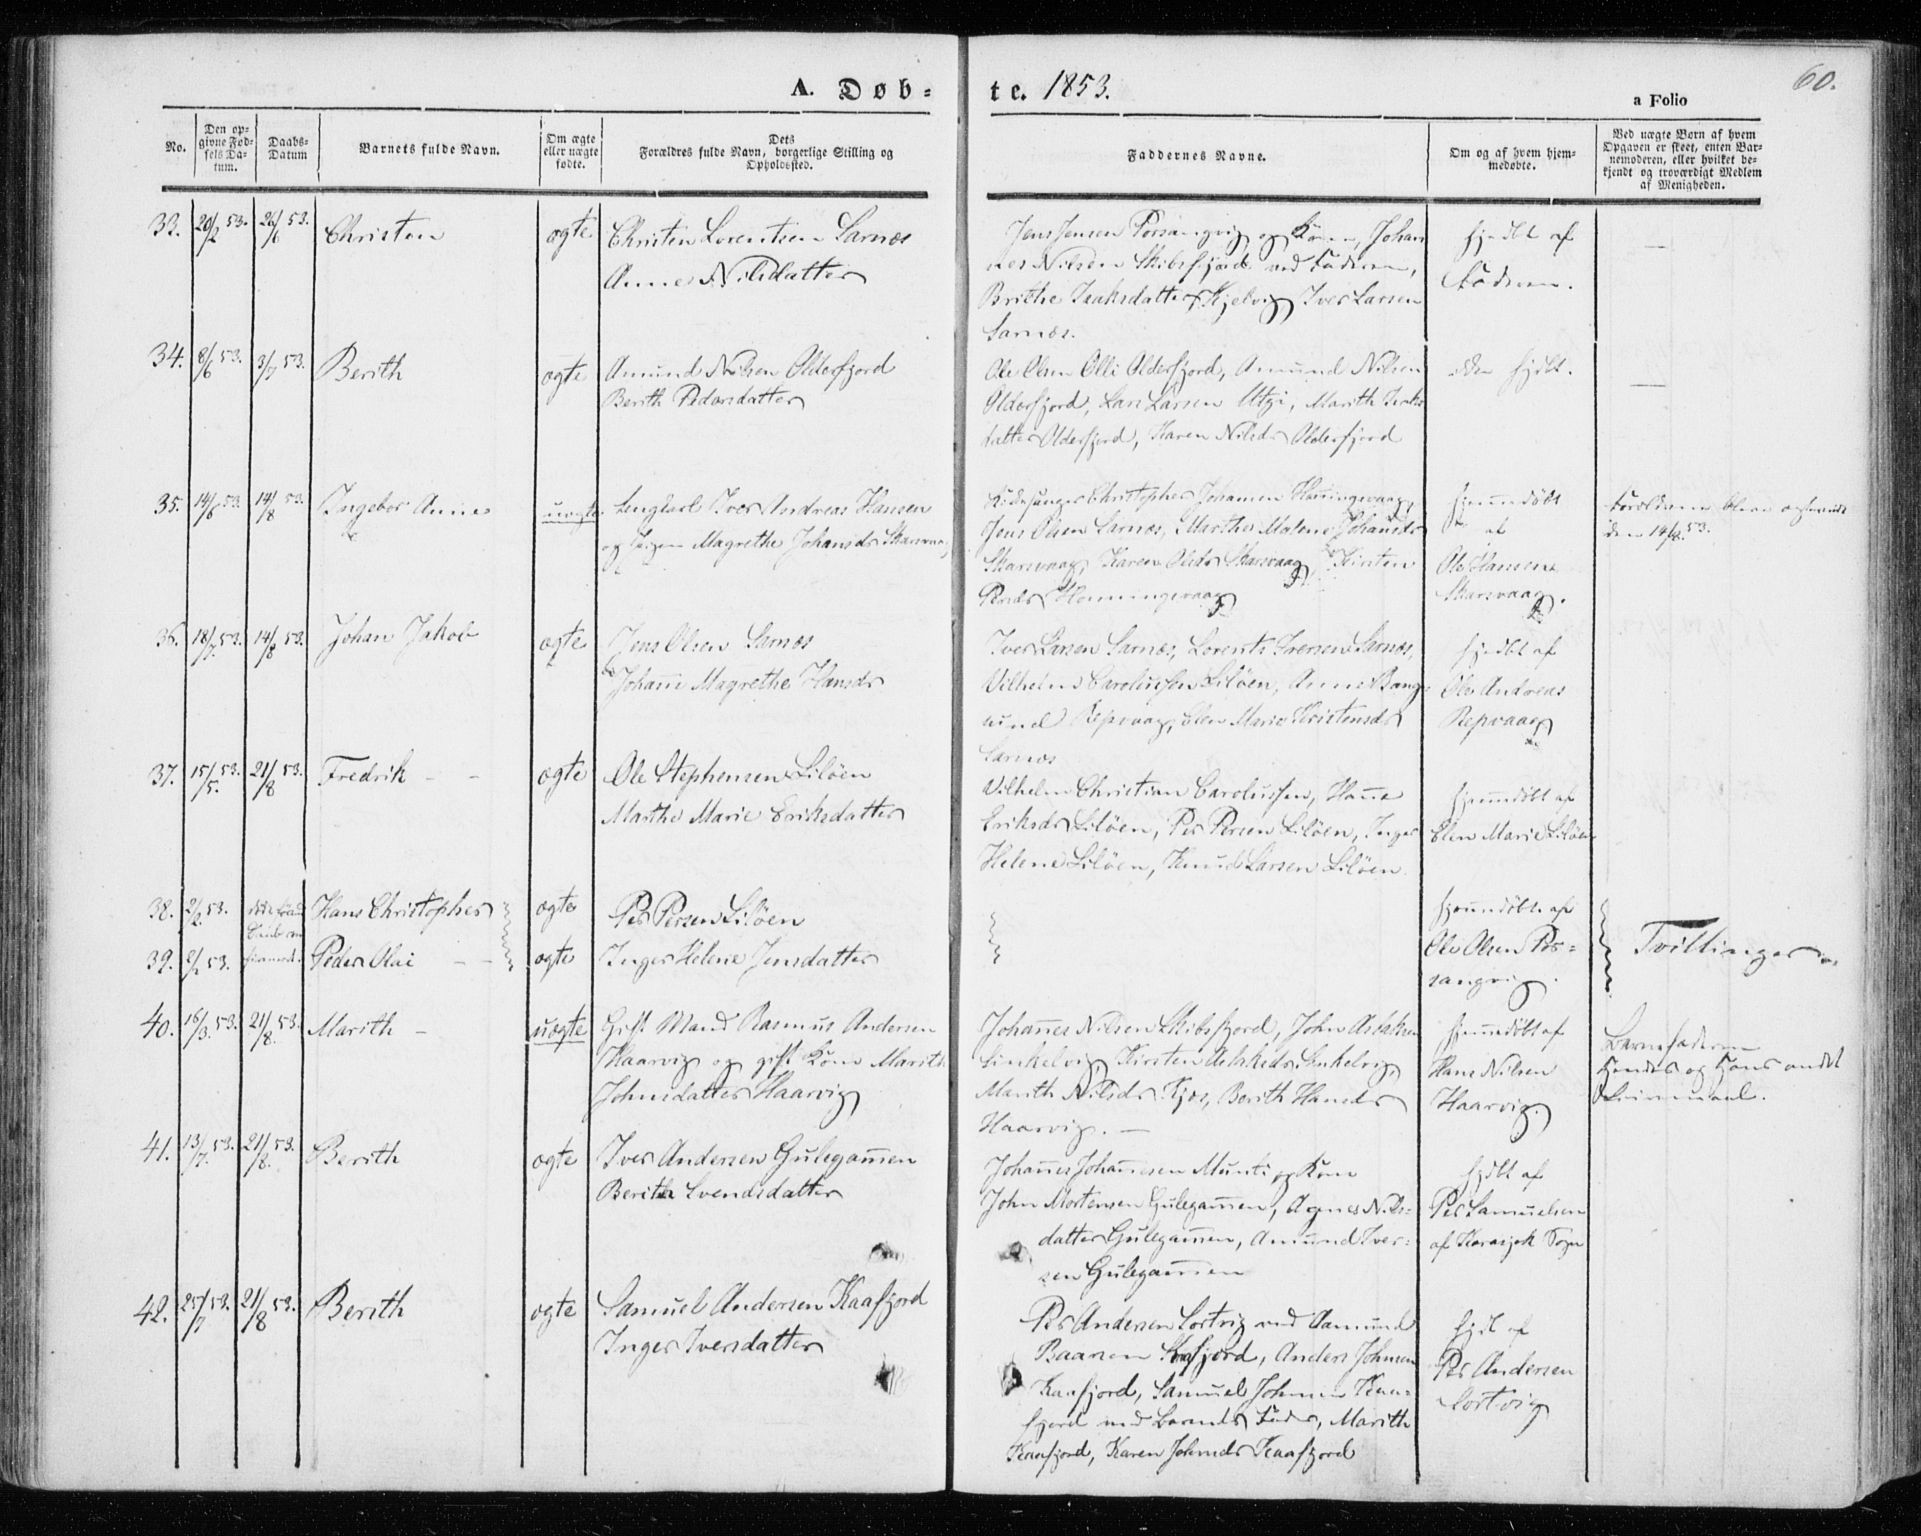 A. Døb-
te. 1853.
60.
a Folio
No.
Den op-
givne Fød-
sels Da-
tum.
Daabs-
Datum
Barnets fulde Navn.
Om ægte
eller uægte
fødte.
Dets
Forældres fulde Navn, borgerlige Stilling og
Opholdssted.
Faddernes Navne.
Om og af hvem hjem-
medøbte.
Ved uægte Børn af hvem
Opgaven er skeet, enten Bar-
nemoderen, eller hvilket be-
kjendt og troværdigt Medlem
af Menigheden.
33. 20/2 53. 26/6 53. Christen ægte Christen Lorentsen Sarnæs
Anne Nilsdatter
Jens Jensen Porsangvig og Kone, Johan
nes Nilsen Skibsfjord ved Faderen,
Brithe Isaksdatter Kjelvig, Iver Larsen
Sarnæs.
hjdbt af
Faderen.
34. 8/6 53. 3/7 53. Berith ægte Amund Nilsen Olderfjord
Berith Pedersdatter
Ole Olsen Olli Olderfjord, Amund Nilsen
Olderfjord, Lars Larsen Utzi, Marith Isaks
datter Olderfjord, Karen Nilsdr Olderfjord
hjdbt.
35. 14/6 53. 14/8 53. Ingebor Anne uægte Ungkarl Iver Andreas Hansen
og Pigen Magrethe Johansdr Skarsvaag
Kirkesanger Christopher Johansen Honningsvaag,
Jens Olsen Sarnæs, Marthe Malene Johansdr
Skarsvaag, Karen Olsdr Skarsvaag, Kirsten
Persdr Honningsvaag
hjemmdøbt
af
Ole Hansen
Skarsvaag.
Forældrene bleve
den 14/8 53.
36. 18/7 53. 14/8 53. Johan Jakob ægte Jens Olsen Sarnæs
og Johanne Magrethe Hansdr
Iver Larsen Sarnæs, Lorents Iversen Sarnæs,
Vilhelm Carolussen Liløen, Anne Bang-
sund Repvaag, Elen Marie Kristensdr
Sarnæs
hjdbt af
Ole Andreas
Repvaag
37. 15/5. 53. 21/8 53. Fredrik ægte Ole Stephensen Liløen
Marthe Marie Eriksdatter
Vilhelm Christian Carolussen, Hanne
Eriksdr Liløen, Per Persen Liløen, Inger
Helene Liløen, Knud Larsen Liløen.
hjemmdøbt af
Elen Marie Liløen
38. 2/2. 53. Hans Christopher ægte Per Persen Liløen
hjemmdøbt af
39. 2/2 53. Peder Olai ægte Inger Helene Jensdatter
Ole Olsen Por-
sangvig.
Tvillinger
40. 16/3. 53. 21/8. 53. Marith uægte Gift Mand Rasmus Andersen
Haarvig og gift Kone Marith
Johnsdatter Haarvig
Johannes Nilsen Skibsfjord, John Aslaksen
Sinkelvig, Kirsten Aslaksdr Sinkelvig,
Marith Nilsdr Kjæs, Berith Hansdr
Haarvig.
hjemmdøbt af
Hans Nilsen
Haarvig.
Barnefaderen
Hendes og Hans andet
Leiermaal.
41. 13/7. 53. 21/8. 53. Berith ægte Iver Andersen Gulegammen
Berith Svendsdatter
Johannes Johannesen Munti og Kone
John Mortensen Gulegammen, Agnes Nils-
datter Gulegammen, Amund Iver-
sen Gulegammen
hjdbt af
Per Samuelsen
af Karasjok Sogn
42. 25/7 53. 21/8 53. Berith ægte Samuel Andersen Kaafjord
Inger Iversdatter
Per Andersen Sortvig ved Samund
Baarsen Kaafjord, Anders Johnsen
Kaafjord, Samuel Johnsen Kaa-
fjord ved Barnets Fader, Marith
Kaafjord, Karen Johnsdr Kaafjord
hjdt af
Per Andersen
Sortvig